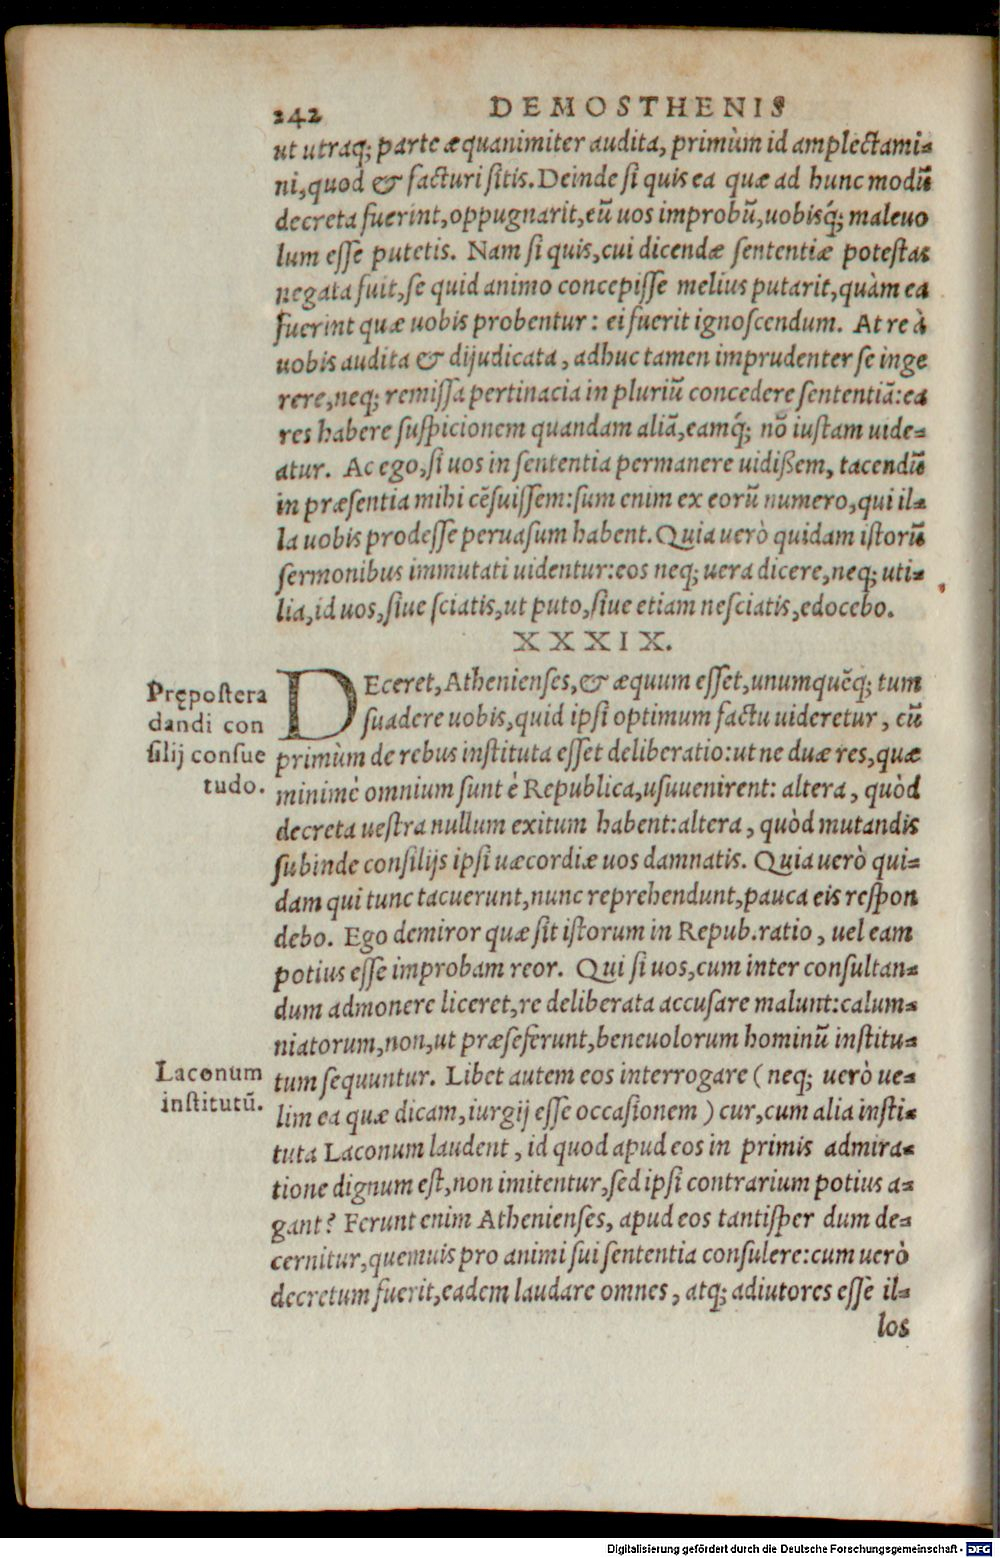 242 DEMOSTHENIS
ut utraq; parte æquanimiter audita, primùm id amplectami-
ni, quod & facturi sitis. Deinde si quis ea quæ ad hunc modũ
decreta fuerint, oppugnarit, eũ uos improbũ, uobisq́; maleuo
lum esse putetis. Nam si quis, cui dicendæ sententiæ potestas
negata fuit, se quid animo concepisse melius putarit, quàm ea
fuerint quæ uobis probentur: ei fuerit ignoscendum. At re à
uobis audita & dijudicata, adhuc tamen imprudenter se inge
rere, neq; remissa pertinacia in pluriũ concedere sententiã: ea
res habere suspicionem quandam aliã, eamq́; nõ iustam uide-
atur. Ac ego, si uos in sententia permanere uidißem, tacendũ
in præsentia mihi cẽsuissem: sum enim ex eorũ numero, qui il-
la uobis prodesse peruasum habent. Quia uerò quidam istorũ
sermonibus immutati uidentur: eos neq; uera dicere, neq; uti-
lia, id uos, siue sciatis, ut puto, siue etiam nesciatis, edocebo.
XXXIX.
Prępostera
dandi con
silij consue
tudo.
DEceret, Athenienses, & æquum esset, unumquẽq; tum
suadere uobis, quid ipsi optimum factu uideretur, cũ
primùm de rebus instituta esset deliberatio: ut ne duæ res, quæ
minimè omnium sunt è Republica, usuuenirent: altera, quòd
decreta uestra nullum exitum habent: altera, quòd mutandis
subinde consilijs ipsi uæcordiæ uos damnatis. Quia uerò qui-
dam qui tunc tacuerunt, nunc reprehendunt, pauca eis respon
debo. Ego demiror quæ sit istorum in Repub. ratio, uel eam
potius esse improbam reor. Qui si uos, cum inter consultan-
dum admonere liceret, re deliberata accusare malunt: calum-
niatorum, non, ut præseferunt, beneuolorum hominũ institu-
Laconum
institutũ.
tum sequuntur. Libet autem eos interrogare (neq; uerò ue-
lim ea quæ dicam, iurgij esse occasionem) cur, cum alia insti-
tuta Laconum laudent, id quod apud eos in primis admira-
tione dignum est, non imitentur, sed ipsi contrarium potius a-
gant? Ferunt enim Athenienses, apud eos tantisper dum de-
cernitur, quemuis pro animi sui sententia consulere: cum uerò
decretum fuerit, eadem laudare omnes, atq; adiutores esse il-
los
Digitalisierung gefördert durch die Deutsche Forschungsgemeinschaft - DFG